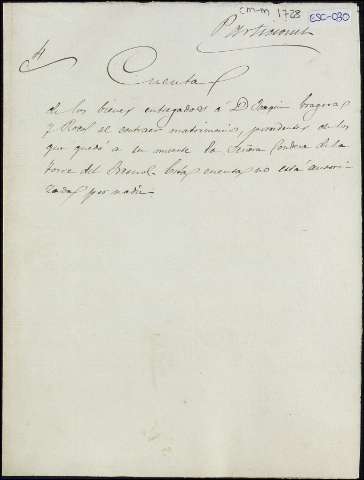 CM-M 1728 ESC-030
Cuenta
de los bienes entregados a D. Joaquin
y Roca al contraer matrimonio, procedentes de los
que quedó a su muerte la Señora Condesa de la
Torre del Esta cuenta no está autori-
zada por nadie